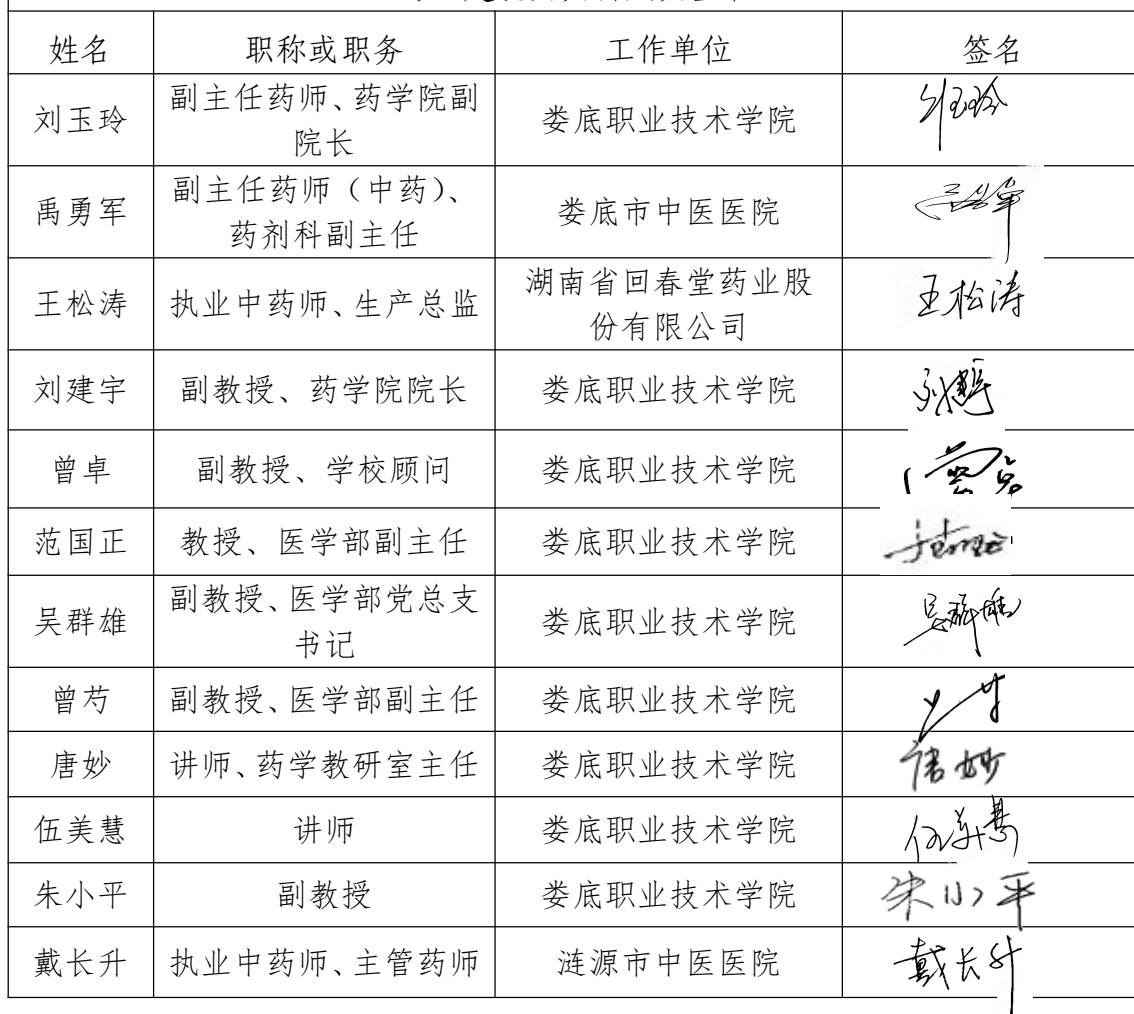 姓名 职称或职务 工作单位 签名
刘玉玲 副主任药师、药学院副 娄底职业技术学院 刘玉玲
院长
禹勇军 副主任药师（中药）、 娄底市中医医院
药剂科副主任
王松涛 执业中药师、生产总监 湖南省回春堂药业股 王松涛
份有限公司
刘建宇 副教授、药学院院长 娄底职业技术学院 刘建宇
曾卓 副教授、学校顾问 娄底职业技术学院
范国正 教授、医学部副主任 娄底职业技术学院
吴群雄 副教授、医学部党总支 娄底职业技术学院 吴群雄
书记
曾芍 副教授、医学部副主任 娄底职业技术学院
唐妙 讲师、药学教研室主任 娄底职业技术学院 唐妙
伍美慧 讲师 娄底职业技术学院 伍美慧
朱小平 副教授 娄底职业技术学院 朱小平
戴长升 执业中药师、主管药师 涟源市中医医院 戴长升